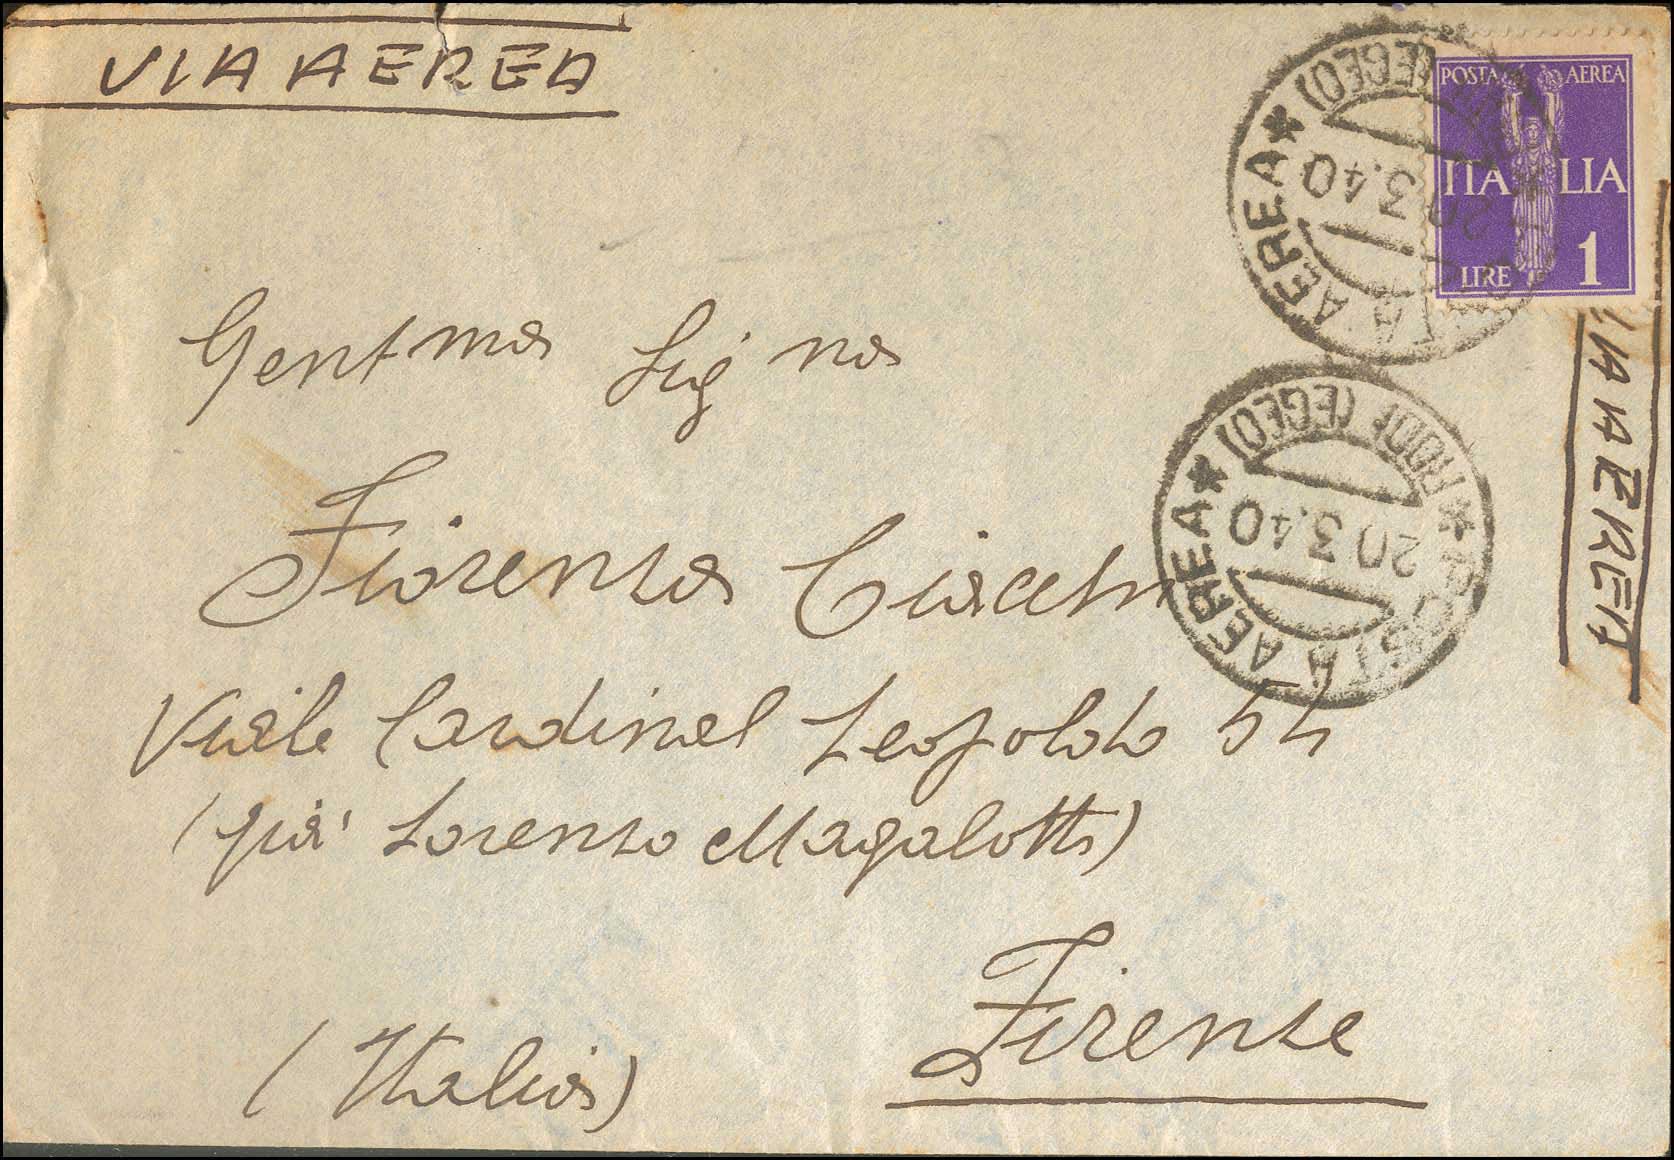 VIA AEREA
POSTA AEREA
ITALIA
LIRE 1
RODI (EGEO)
20 3.40
POSTA AEREA
VIA AEREA
Gentma Sig na
Fiorenza
Viale Cardinal Leopoldo 54
(già Lorenzo Magalotti)
Firenze
(Italia)